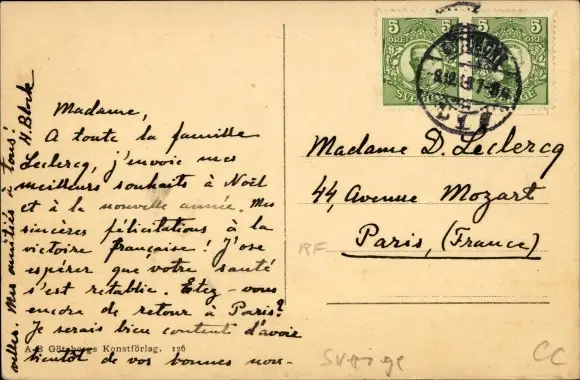 Madame,
A toute la famille
Leclercq, j'envoie mes
meilleurs souhaits à Noël
et à la nouvelle année. Mes
sincères félicitations à la
victoire française! J'ose
espérer que votre santé
s'est retablie. Etez-vous
encore de retour à Paris?
Je serais bien content d'avoir
bientôt de vos bonnes nou-
velles. Mes amitiés à tous! H. Block
A-B Göteborgs Konstförlag. 126
5 5
ÖRE
SVERIGE
5 5
ÖRE
Madame D. Leclercq
44, Avenue Mozart
Paris, (France)
RF
Sverige
CC